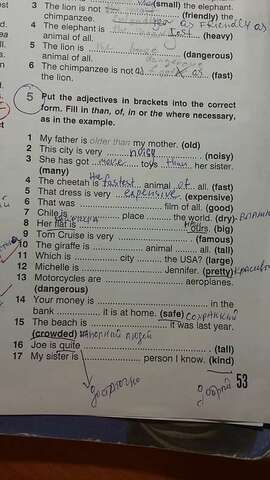 3 The lion is not ... (small) the elephant.
chimpanzee. (friendly) the
as friendly as
4 The elephant is the ... (heavy)
animal of all.
5 The lion is the ... (dangerous)
dangerous
animal of all.
6 The chimpanzee is not as ... as (fast)
the lion.
5 Put the adjectives in brackets into the correct
form. Fill in than, of, in or the where necessary,
as in the example.
1 My father is older than my mother. (old)
2 This city is very noisy (noisy)
3 She has got more toys than her sister.
(many)
4 The cheetah is the fastest animal of all. (fast)
5 That dress is very expensive (expensive)
6 That was ... film of all. (good)
7 Chile is ... place ... the world. (dry)
8 Her flat is ... ours. (big)
9 Tom Cruise is very ... (famous)
10 The giraffe is ... animal ... all. (tall)
11 Which is ... city ... the USA? (large)
12 Michelle is ... Jennifer. (pretty)
13 Motorcycles are ... aeroplanes.
(dangerous)
14 Your money is ... in the
bank ... it is at home. (safe)
15 The beach is ... it was last year.
(crowded) людей
16 Joe is quite ... (tall)
17 My sister is ... person I know. (kind)
достаточно
добрый
53